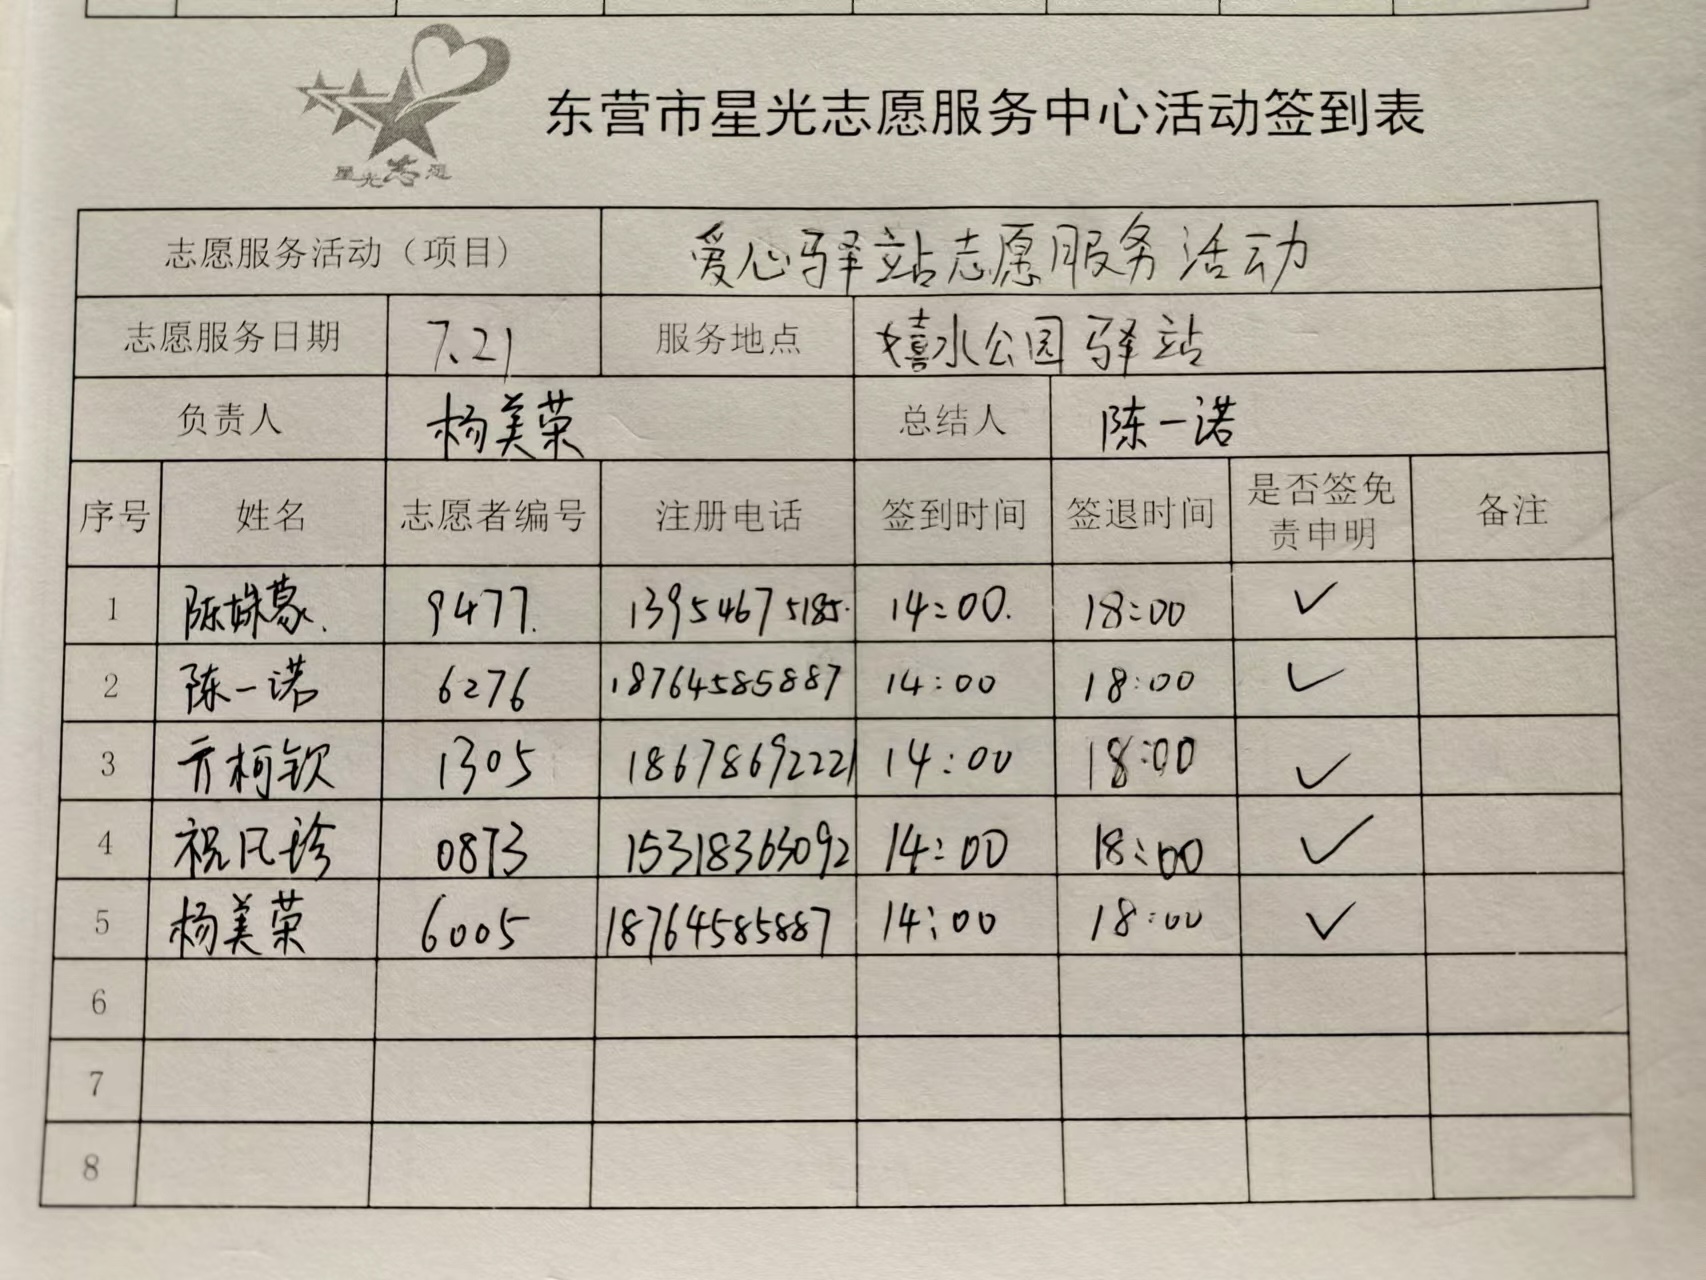 星光志愿
东营市星光志愿服务中心活动签到表
志愿服务活动（项目） 爱心驿站志愿服务活动
志愿服务日期 7.21 服务地点 嬉水公园驿站
负责人 杨美荣 总结人 陈一诺
序号 姓名 志愿者编号 注册电话 签到时间 签退时间 是否签免责申明 备注
1 陈姝蒙. 9477. 13954675185. 14:00. 18:00 ✓
2 陈一诺 6276 18764585887 14:00 18:00 ✓
3 亓柯钦 1305 18678692221 14:00 18:00 ✓
4 祝凡珍 0873 15318363092 14:00 18:00 ✓
5 杨美荣 6005 18764585887 14:00 18:00 ✓
6
7
8